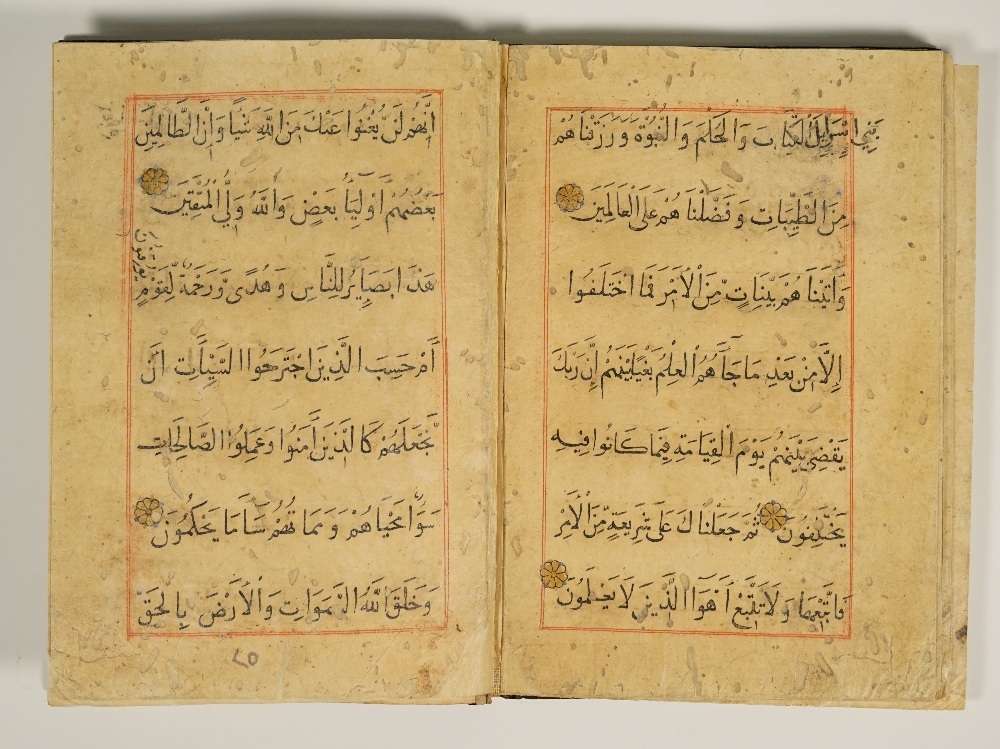 بَنِي اِسْرَايِلَ الْكِتَابَ وَالْحُكْمَ وَالنُّبُوَّةَ وَرَزَقْنَاهُمْ
مِنَ الطَّيِّبَاتِ وَفَضَّلْنَاهُمْ عَلَى الْعَالَمِينَ
وَاٰتَيْنَاهُمْ بَيِّنَاتٍ مِنَ الْاَمْرِ فَمَا اخْتَلَفُوا
اِلَّا مِنْ بَعْدِ مَا جَاءَهُمُ الْعِلْمُ بَغْيًا بَيْنَهُمْ اِنَّ رَبَّكَ
يَقْضِي بَيْنَهُمْ يَوْمَ الْقِيَامَةِ فِيمَا كَانُوا فِيهِ
يَخْتَلِفُونَ ثُمَّ جَعَلْنَاكَ عَلَى شَرِيعَةٍ مِنَ الْاَمْرِ
فَاتَّبِعْهَا وَلَا تَتَّبِعْ اَهْوَاءَ الَّذِينَ لَا يَعْلَمُونَ
اِنَّهُمْ لَنْ يُغْنُوا عَنْكَ مِنَ اللّٰهِ شَيْئًا وَاِنَّ الظَّالِمِينَ
بَعْضُهُمْ اَوْلِيَاءُ بَعْضٍ وَاللّٰهُ وَلِيُّ الْمُتَّقِينَ
هَذَا بَصَايِرُ لِلنَّاسِ وَهُدًى وَرَحْمَةٌ لِقَوْمٍ
يُوقِنُونَ
اَمْ حَسِبَ الَّذِينَ اجْتَرَحُوا السَّيِّاٰتِ اَنْ
نَجْعَلَهُمْ كَالَّذِينَ اٰمَنُوا وَعَمِلُوا الصَّالِحَاتِ
سَوَاءً مَحْيَاهُمْ وَمَمَاتُهُمْ سَاءَ مَا يَحْكُمُونَ
وَخَلَقَ اللّٰهُ السَّمَوَاتِ وَالْاَرْضَ بِالْحَقِّ